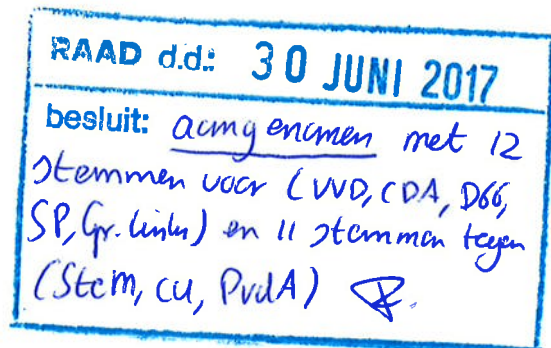 RAAD d.d.: 30 JUNI 2017
besluit: aangenomen met 12
stemmen voor (VVD, CDA, D66,
SP, Gr. Links) en 11 stemmen tegen
(Stem, CU, PvdA)